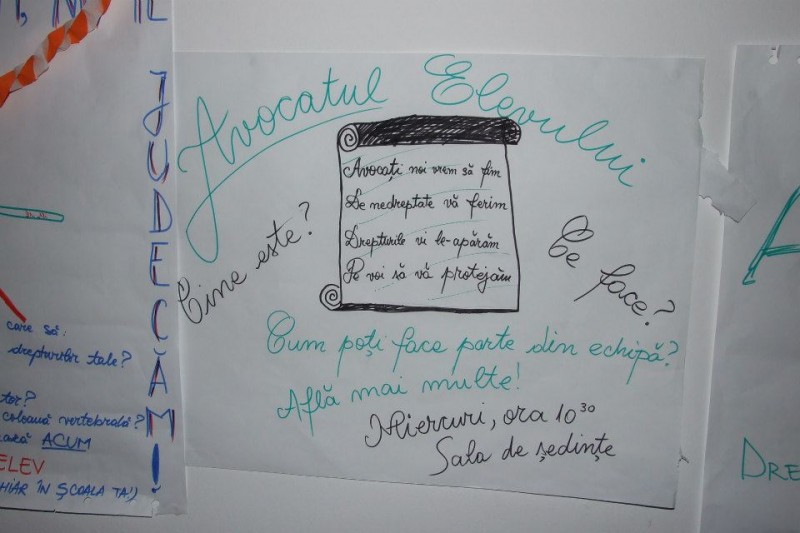 JUDECĂM!
care să:
drepturilor tale?
coloană vertebrală?
ACUM
ELEV
ÎN ȘCOALA TA!)
Avocatul Elevului
Avocați noi vrem să fim
De nedreptate vă ferim
Drepturile vi le-apărăm
Pe voi să vă protejăm
Cine este?
Ce face?
Cum poți face parte din echipă?
Află mai multe!
Miercuri, ora 10³⁰
Sala de ședințe